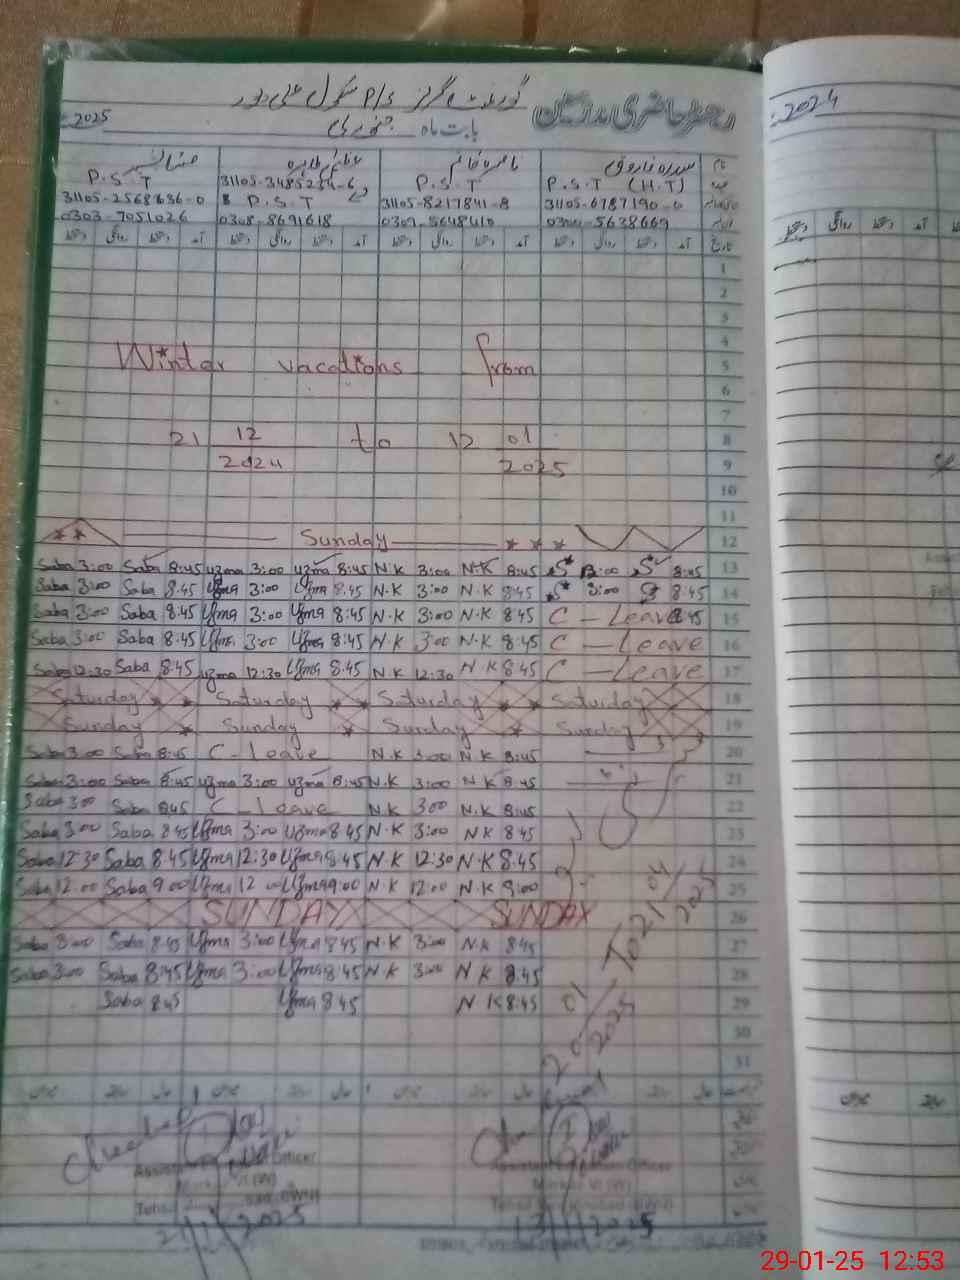 رجسٹر حاضری مدرسین
گورنمنٹ گرلز P/S سکول علی پور
بابت ماہ جنوری 2025
2024
نام سیدہ فاروق
P.S.T (H.T)
31105-6787190-0
5638669
P.S.T
31105-8217841-8
0309-5648410
عظمیٰ طاہرہ
31105-3485254-6
P.S.T
0308-8691618
P.S.T
31105-2568636-0
0303-7051026
تاریخ آمد دستخط روانگی دستخط آمد دستخط روانگی دستخط آمد دستخط روانگی دستخط آمد دستخط روانگی دستخط
1
2
3
4
Winter vacations from 5
6
7
21 12 to 12 01 8
2024 2025 9
10
11
Sunday 12
Saba 3:00 Saba 8:45 uzma 3:00 uzma 8:45 N.K 3:00 N.K 8:45 S 3:00 S 8:45 13
Saba 3:00 Saba 8.45 Uzma 3:00 Uzma 8.45 N.K 3:00 N.K 8:45 S 3:00 S 8.45 14
Saba 3:00 Saba 8.45 Uzma 3:00 Uzma 8:45 N.K 3:00 N.K 8:45 C - Leave 8:45 15
Saba 3:00 Saba 8:45 Uzma 3:00 Uzma 8:45 N.K 3:00 N.K 8:45 C - Leave 16
Saba 12:30 Saba 8.45 uzma 12:30 Uzma 8.45 N.K 12:30 N K 8.45 C - Leave 17
Saturday Saturday Saturday Saturday 18
Sunday Sunday Sunday Sunday 19
Saba 3:00 Saba 8:45 C - Leave N.K 3:00 N.K 8:45 20
Saba 3:00 Saba 8:45 uzma 3:00 uzma 8:45 N.K 3:00 N.K 8:45 21
Saba 3:00 Saba 8:45 C - Leave N.K 3:00 N.K 8:45 22
Saba 3:00 Saba 8:45 Uzma 3:00 Uzma 8.45 N.K 3:00 N.K 8:45 23
Saba 12:30 Saba 8.45 Uzma 12:30 Uzma 8.45 N.K 12:30 N.K 8.45 24
Saba 12:00 Saba 9:00 Uzma 12:00 Uzma 9:00 N.K 12:00 N.K 9:00 25
SUNDAY SUNDAY 26
Saba 3:00 Saba 8.45 Uzma 3:00 Uzma 8.45 N.K 3:00 N.K 8.45 27
Saba 3:00 Saba 8:45 Uzma 3:00 Uzma 8:45 N.K 3:00 N.K 8.45 28
Saba 8.45 Uzma 8.45 N K 8.45 29
30
31
20/01/2025 To 21/04/2025
Assistant Officer
Assistant Officer
Markaz VI (W)
Markaz VI (W)
2025
13/1/2025
29-01-25 12:53